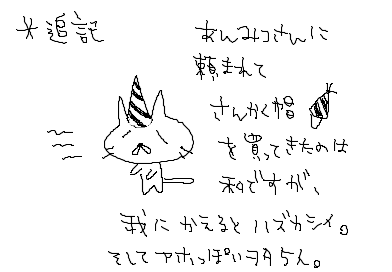 *追記
あんみつさんに
頼まれて
さんかく帽
を買ってきたのは
私ですが、
我にかえるとハズカシイ。
そしてアホっぽい